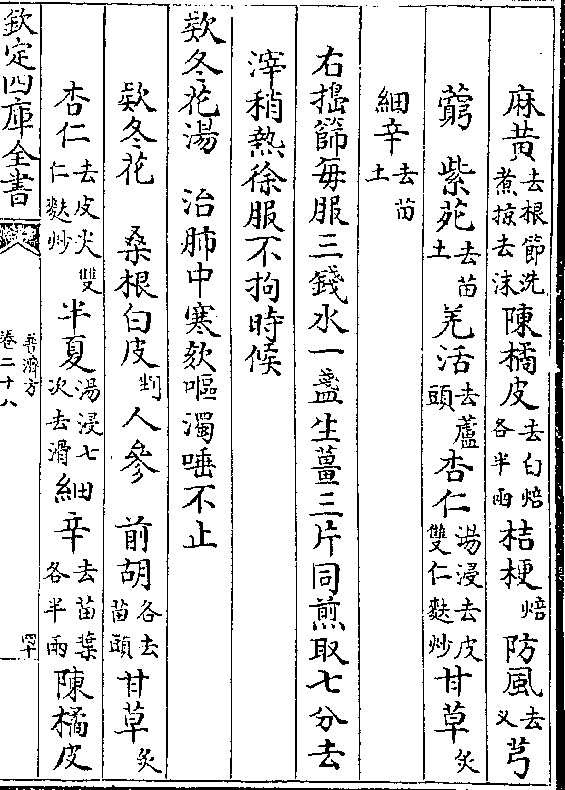 麻黄去根節洗煮掠去沫陳橘皮去白焙各半兩桔梗焙防風去叉芎
藭紫苑去苗土羌活去蘆頭杏仁湯浸去皮雙仁麩炒甘草炙
細辛去苗土
右搗篩每服三錢水一盞生薑三片同煎取七分去
滓稍熱徐服不拘時候
欵冬花湯 治肺中寒欬嘔濁唾不止
欵冬花 桑根白皮剉人參 前胡各去苗頭甘草炙
杏仁去皮尖雙仁麩炒半夏湯浸七次去滑細辛去苗葉各半兩陳橘皮
欽定四庫全書
普濟方
卷二十八